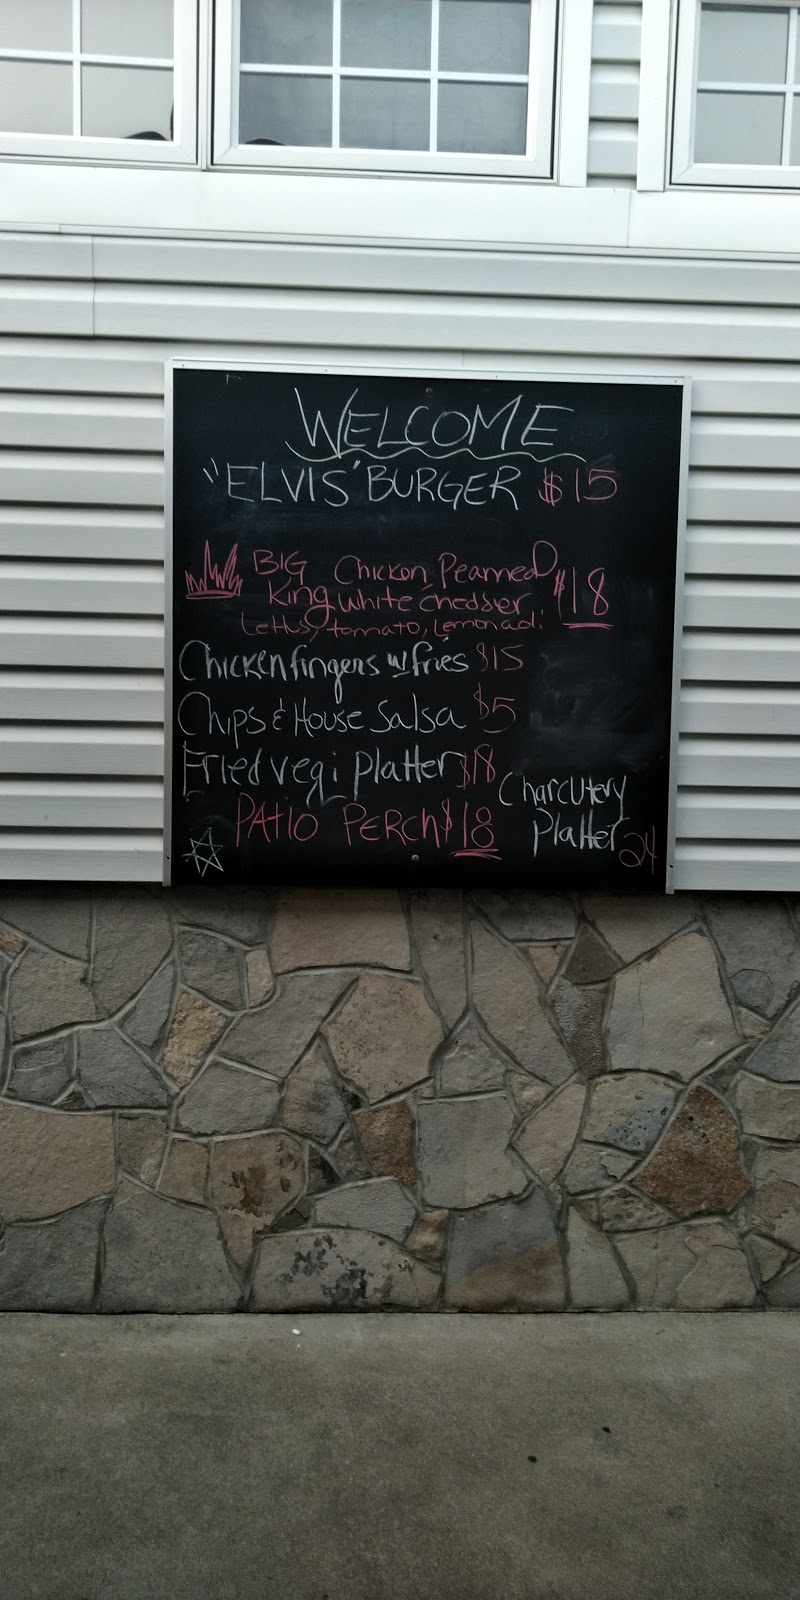 WELCOME
"ELVIS" BURGER $15
BIG Chicken, Pearmeal
King white cheddser $18
Lettus, tomato, Lemonaoli
Chicken fingers w/ fries $15
Chips & House Salsa $5
Fried vegi platter $18
Charcutery
PATIO PERCH $18 Platter 24